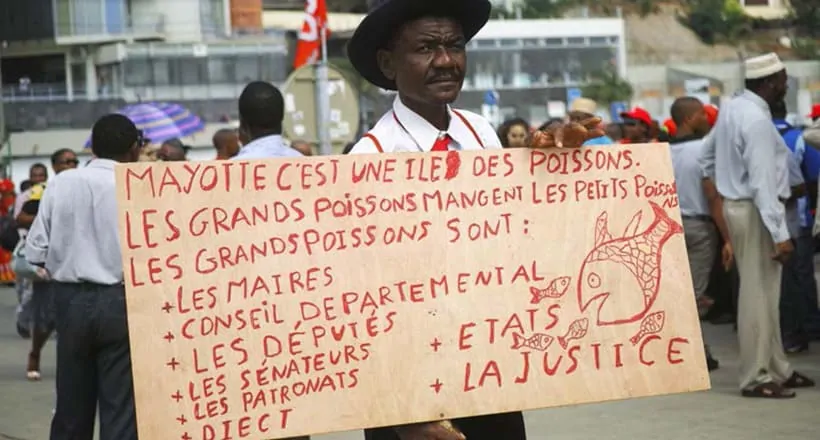 MAYOTTE C'EST UNE ILE DES POISSONS.
LES GRANDS POISSONS MANGENT LES PETITS POISSONS
LES GRANDS POISSONS SONT :
+ LES MAIRES
+ CONSEIL DEPARTEMENTAL
+ LES DÉPUTÉS
+ LES SÉNATEURS
+ LES PATRONATS
+ DIECT
+ ETATS
+ LA JUSTICE